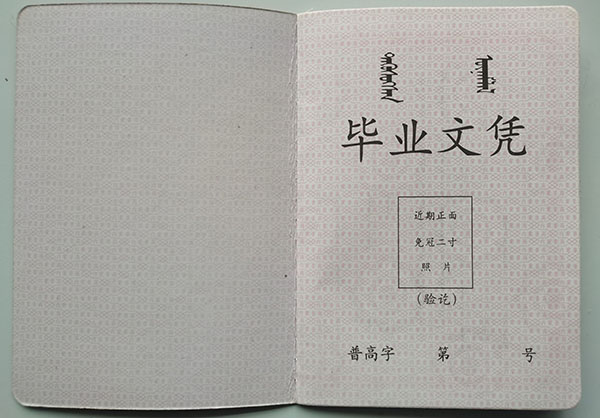 毕业文凭
近期正面
免冠二寸
照 片
(验讫)
普高字 第 号